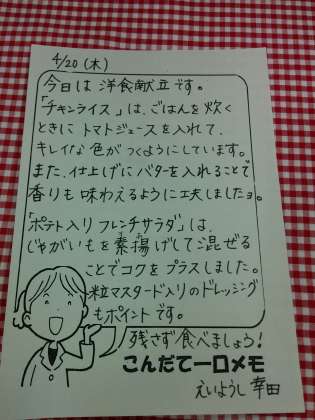 4/20 (木)
今日は 洋食献立です。
「チキンライス」は、ごはんを炊く
ときに トマトジュースを入れて、
キレイな色がつくようにしています。
また、仕上げにバターを入れることで
香りも味わえるように工夫しましたョ。
「ポテト入り フレンチサラダ」は、
じゃがいもを素揚げして混ぜる
ことでコクをプラスしました。
粒マスタード入りのドレッシング
もポイントです。
残さず食べましょう!
こんだて一口メモ
えいようし 幸田